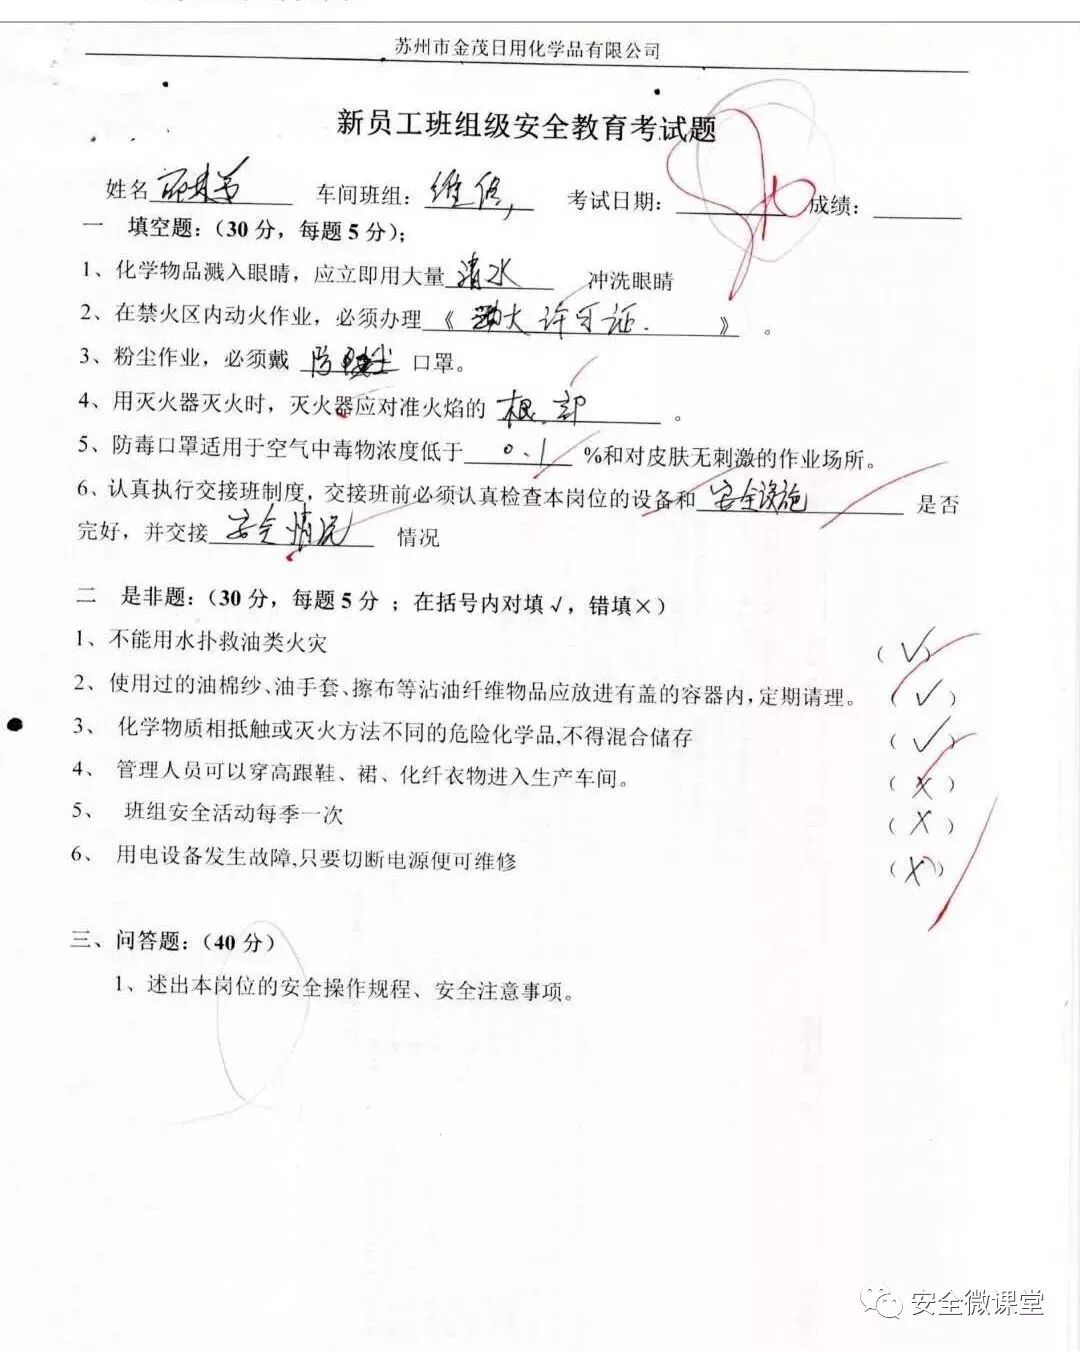 苏州市金茂日用化学品有限公司
新员工班组级安全教育考试题
姓名 车间班组：维修， 考试日期： 成绩：
一 填空题：（30分，每题5分）；
1、化学物品溅入眼睛，应立即用大量 清水 冲洗眼睛
2、在禁火区内动火作业，必须办理《 动火许可证. 》 。
3、粉尘作业，必须戴 防尘 口罩。
4、用灭火器灭火时，灭火器应对准火焰的 根部 。
5、防毒口罩适用于空气中毒物浓度低于 0.1 %和对皮肤无刺激的作业场所。
6、认真执行交接班制度，交接班前必须认真检查本岗位的设备和 安全设施 是否
完好，并交接 安全情况 情况
二 是非题：（30分，每题5分 ；在括号内对填√，错填×）
1、不能用水扑救油类火灾 （√）
2、使用过的油棉纱、油手套、擦布等沾油纤维物品应放进有盖的容器内，定期请理。 （√）
3、 化学物质相抵触或灭火方法不同的危险化学品,不得混合储存 （√）
4、 管理人员可以穿高跟鞋、裙、化纤衣物进入生产车间。 （×）
5、 班组安全活动每季一次 （×）
6、 用电设备发生故障,只要切断电源便可维修 （×）
三、问答题：（40分）
1、述出本岗位的安全操作规程、安全注意事项。
安全微课堂